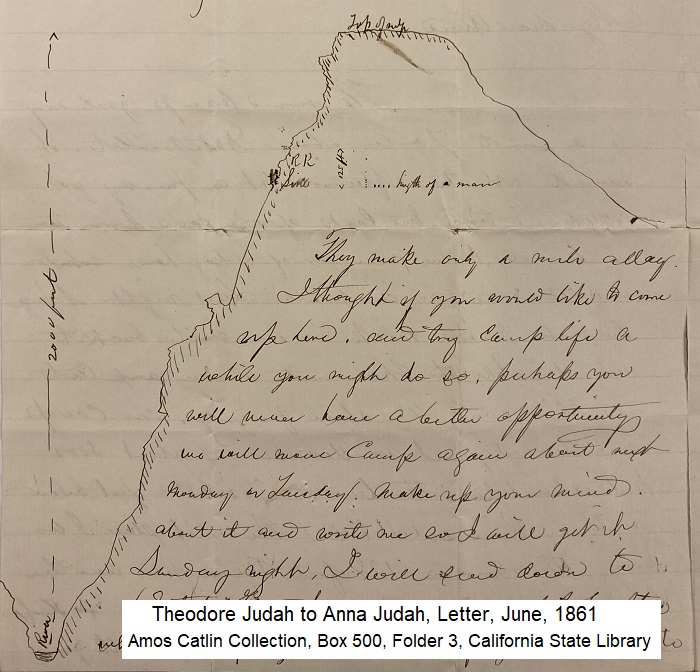 Top of
RR
line
.... hight of a man
2000 feet
They make only a mile a day.
I thought if you would like to come
up here, and try Camp life a
while you might do so, perhaps you
will never have a better opportunity
we will move Camp again about next
Monday or Tuesday. Make up your mind.
about it and write me so I will get it
Sunday night, I will send down to
River
Theodore Judah to Anna Judah, Letter, June, 1861
Amos Catlin Collection, Box 500, Folder 3, California State Library